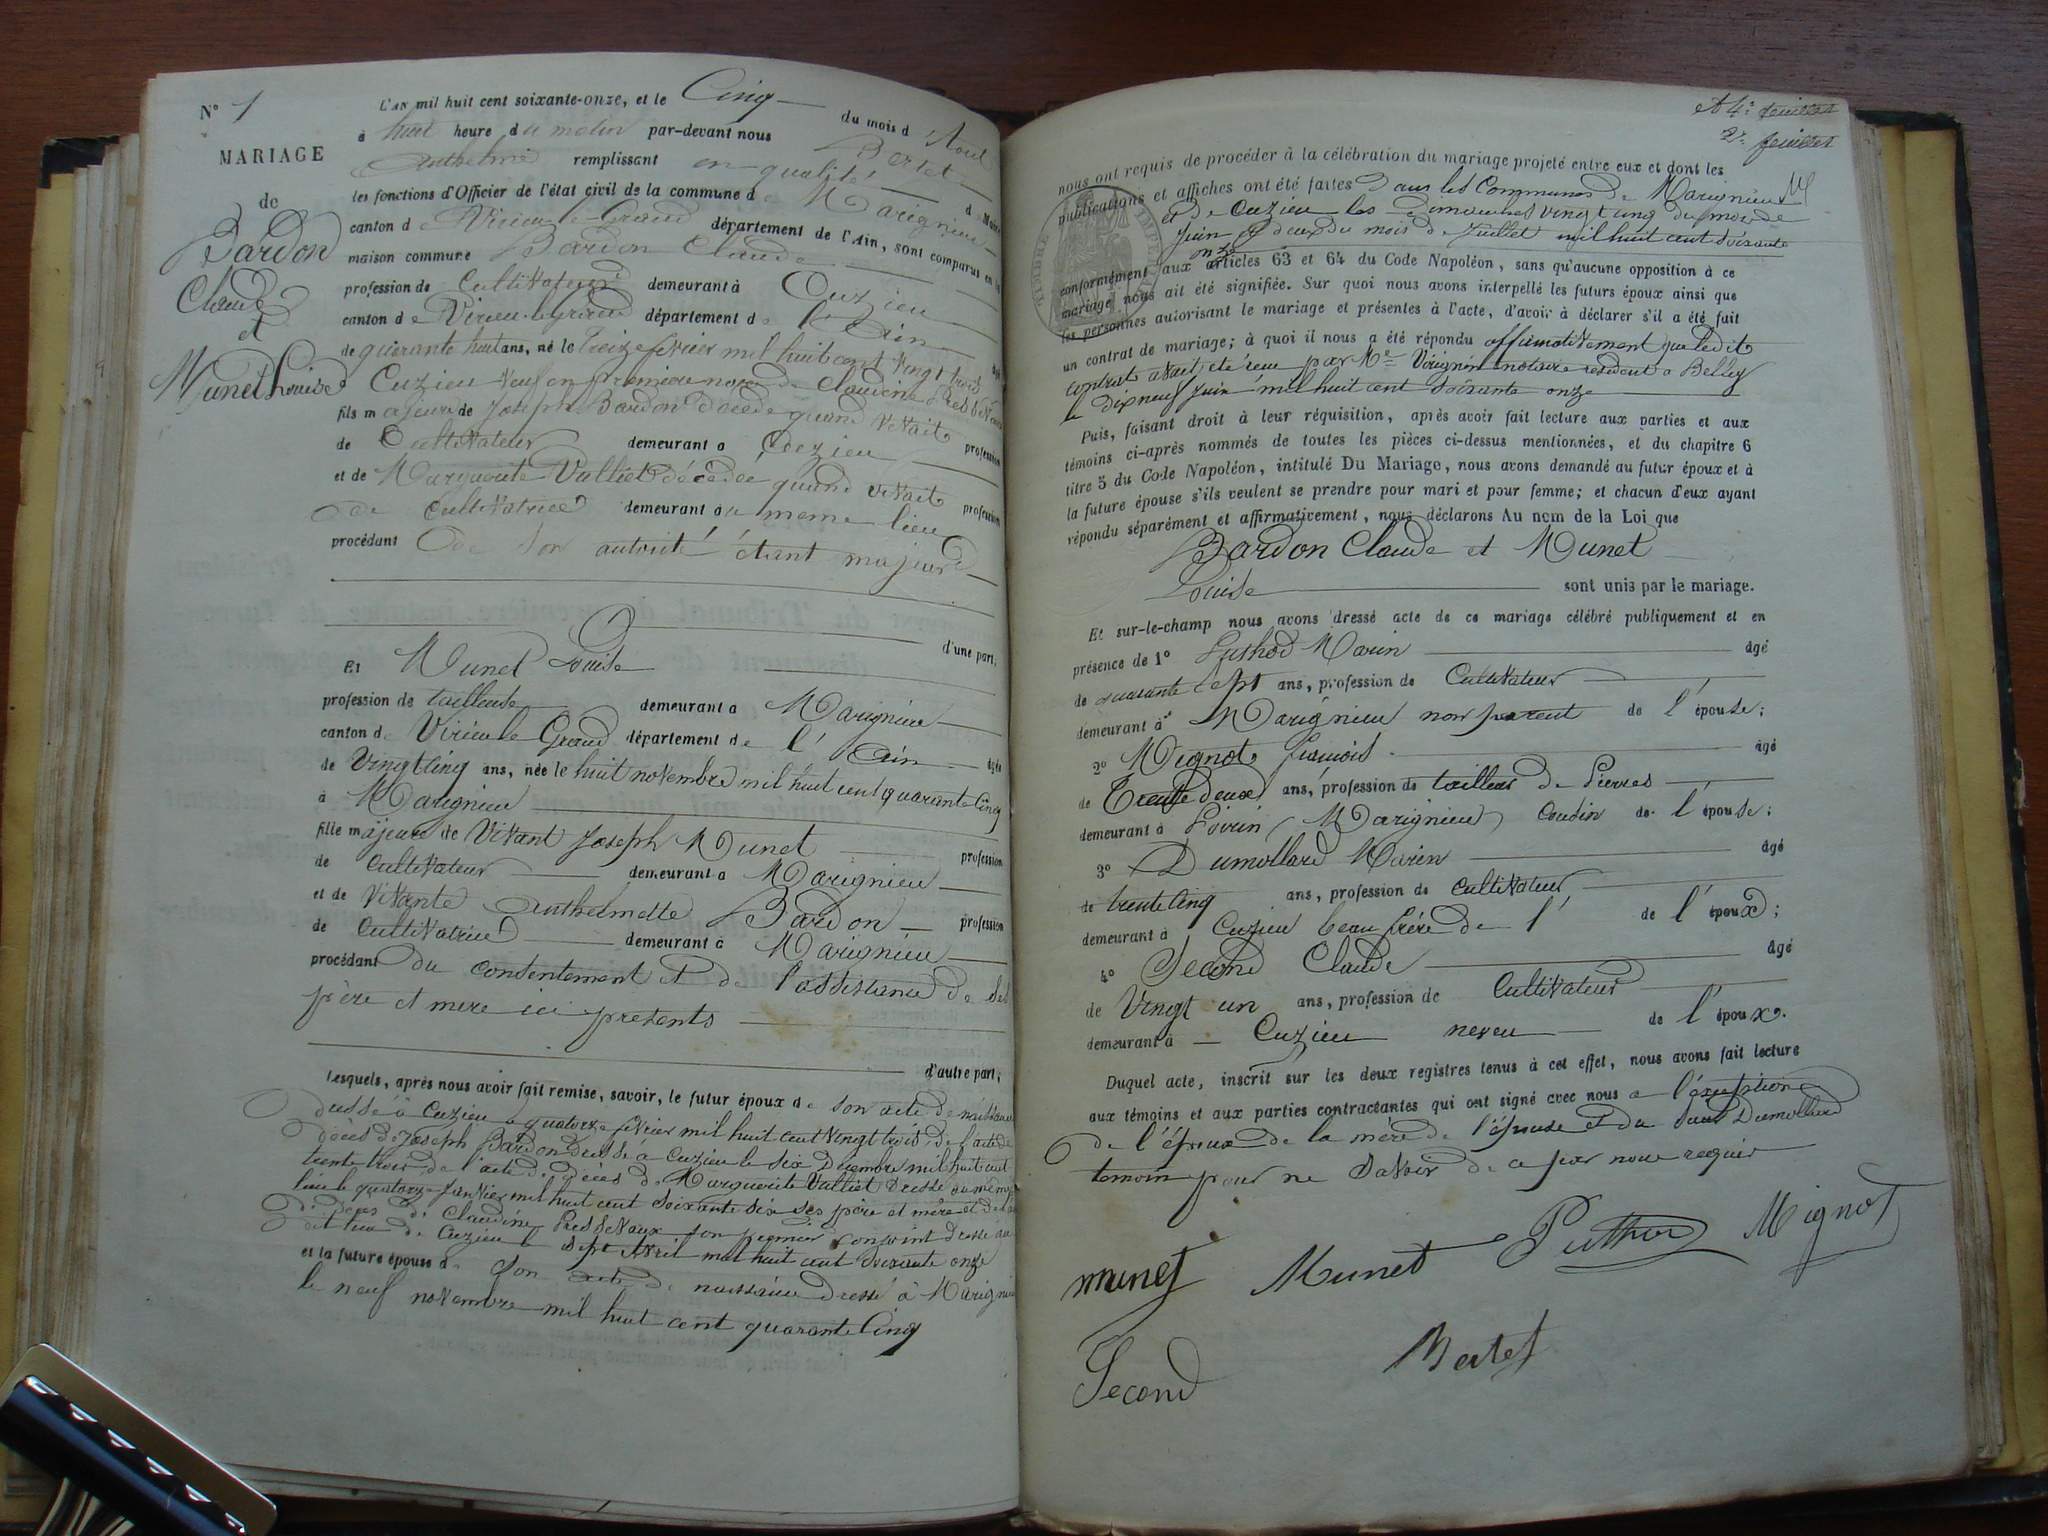 N° 1
MARIAGE
de
Bardon
Claude
et
Munet Louise
L'AN mil huit cent soixante-onze, et le Cinq du mois d'Aout
à huit heure du matin par-devant nous Bertet
Anthelme remplissant en qualité de Maire
les fonctions d'Officier de l'état civil de la commune de Marignieu
canton de Virieu le Grand département de l'Ain, sont comparus en la
maison commune Bardon Claude
profession de Cultivateur demeurant à Cuzieu
canton de Virieu le Grand département de l'Ain âgé
de quarante huit ans, né le treize février mil huit cent vingt trois
à Cuzieu veuf en première noce de Claudine
fils majeur de Joseph Bardon décédé quand vivait profession
de Cultivateur demeurant a Cuzieu
et de Marguerite Vulliet décédée quand vivait profession
de Cultivatrice demeurant au meme lieu
procédant de son autorité étant majeur
d'une part;
Et Munet Louise
profession de tailleuse demeurant a Marignieu
canton de Virieu le Grand département de l'Ain âgée
de vingt cinq ans, née le huit novembre mil huit cent quarante cinq
à Marignieu
fille majeure de vivant Joseph Munet profession
de cultivateur demeurant a Marignieu
et de vivante Anthelmette Bardon profession
de cultivatrice demeurant à Marignieu
procédant du consentement et de l'assistance de ses
père et mère ici présents
d'autre part;
Lesquels, après nous avoir fait remise, savoir, le futur époux de son acte de naissance
dressé à Cuzieu le quatorze février mil huit cent vingt trois, de l'acte de
décès de Joseph Bardon dressé à Cuzieu le six Décembre mil huit cent
trente trois de l'acte de décès de Marguerite Vulliet dressé au même
lieu le quatorze janvier mil huit cent soixante six ses père et mère et de
décès de Claudine son premier conjoint dressé au
dit lieu de Cuzieu le sept Avril mil huit cent soixante onze
et la future épouse de son acte de naissance dressé à Marignieu
le neuf novembre mil huit cent quarante cinq
et 4e feuillet
2e feuillet
nous ont requis de procéder à la célébration du mariage projeté entre eux et dont les
publications et affiches ont été faites dans les Communes de Marignieu
et de Cuzieu les dimanches vingt cinq du mois de
Juin et deux du mois de Juillet mil huit cent soixante
onze
conformément aux articles 63 et 64 du Code Napoléon, sans qu'aucune opposition à ce
mariage nous ait été signifiée. Sur quoi nous avons interpellé les futurs époux ainsi que
les personnes autorisant le mariage et présentes à l'acte, d'avoir à déclarer s'il a été fait
un contrat de mariage; à quoi il nous a été répondu affirmativement que le dit
contrat avait été reçu par Me notaire résident a Belley
le dix neuf juin mil huit cent soixante onze
Puis, faisant droit à leur réquisition, après avoir fait lecture aux parties et aux
témoins ci-après nommés de toutes les pièces ci-dessus mentionnées, et du chapitre 6
titre 5 du Code Napoléon, intitulé Du Mariage, nous avons demandé au futur époux et à
la future épouse s'ils veulent se prendre pour mari et pour femme; et chacun d'eux ayant
répondu séparément et affirmativement, nous déclarons Au nom de la Loi que
Bardon Claude et Munet
Louise sont unis par le mariage.
Et sur-le-champ nous avons dressé acte de ce mariage célébré publiquement et en
présence de 1° Puthod Marin âgé
de quarante sept ans, profession de Cultivateur
demeurant à Marignieu non parent de l'épouse;
2° Mignot François âgé
de Trente deux ans, profession de tailleur de Pierres
demeurant à Poirin (Marignieu) Cousin de l'épouse;
3° Dumollard Marin âgé
de trente cinq ans, profession de cultivateur
demeurant à Cuzieu beau frère de l' de l'époux;
4° Second Claude âgé
de vingt un ans, profession de Cultivateur
demeurant à Cuzieu neveu de l'époux.
Duquel acte, inscrit sur les deux registres tenus à cet effet, nous avons fait lecture
aux témoins et aux parties contractantes qui ont signé avec nous a l'exception
de l'époux de la mère de l'épouse et du Dumollard
temoin pour ne savoir de ce par nous requis
munet Munet Puthod Mignot
Second Bertet